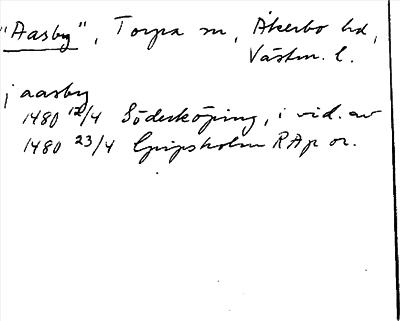 "Aasby", Torpa sn, Åkerbo hd,
Västm. l.
j aasby
1480 12/4 Söderköping, i vid. av
1480 23/4 Gripsholm RAp or.